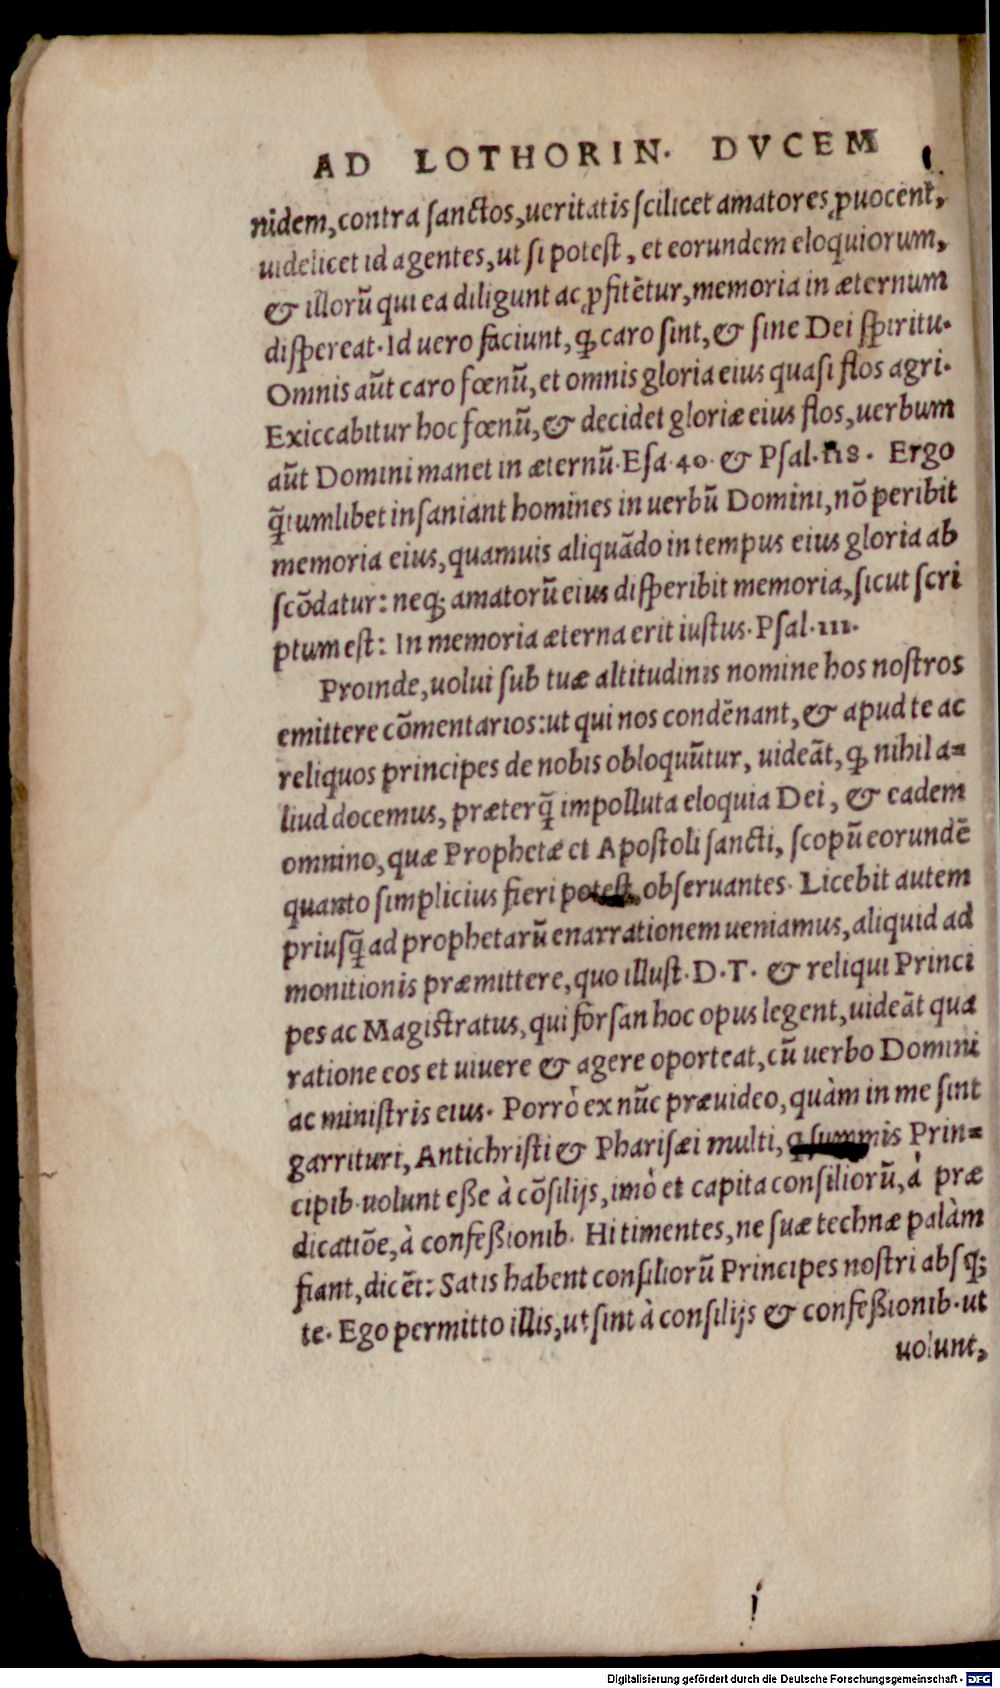 AD LOTHORIN. DVCEM
nidem, contra ſanctos, ueritatis ſcilicet amatores ꝓuocent,
uidelicet id agentes, ut ſi poteſt, et eorundem eloquiorum,
& illorũ qui ea diligunt ac ꝓfitẽtur, memoria in æternum
diſpereat. Id uero faciunt, ꝙ caro ſint, & ſine Dei ſpiritu.
Omnis aũt caro fœnũ, et omnis gloria eius quaſi flos agri.
Exiccabitur hoc fœnũ, & decidet gloriæ eius flos, uerbum
aũt Domini manet in æternũ. Eſa. 40. & Pſal. 118. Ergo
q̃tumlibet inſaniant homines in uerbũ Domini, nõ peribit
memoria eius, quamuis aliquãdo in tempus eius gloria ab
ſcõdatur: neq; amatorũ eius diſperibit memoria, ſicut ſcri
ptum eſt: In memoria æterna erit iuſtus. Pſal. 111.
Proinde, uolui ſub tuæ altitudinis nomine hos noſtros
emittere cõmentarios: ut qui nos condẽnant, & apud te ac
reliquos principes de nobis obloquũtur, uideãt, ꝙ nihil a=
liud docemus, præterq̃ impolluta eloquia Dei, & eadem
omnino, quæ Prophetæ et Apoſtoli ſancti, ſcopũ eorundẽ
quanto ſimplicius fieri poteſt obſeruantes. Licebit autem
priuſq̃ ad prophetarũ enarrationem ueniamus, aliquid ad
monitionis præmittere, quo illuſt. D. T. & reliqui Princi
pes ac Magiſtratus, qui forſan hoc opus legent, uideãt qua
ratione eos et uiuere & agere oporteat, cũ uerbo Domini
ac miniſtris eius. Porrò ex nũc præuideo, quàm in me ſint
garrituri, Antichriſti & Phariſæi multi, q ſummis Prin=
cipib. uolunt eſſe à cõſilijs, imò et capita conſiliorũ, à præ
dicatiõe, à confeßionib. Hi timentes, ne ſuæ technæ palàm
fiant, dicẽt: Satis habent conſiliorũ Principes noſtri abſq;
te. Ego permitto illis, ut ſint à conſilijs & confeßionib. ut
uolunt,
Digitalisierung gefördert durch die Deutsche Forschungsgemeinschaft - DFG